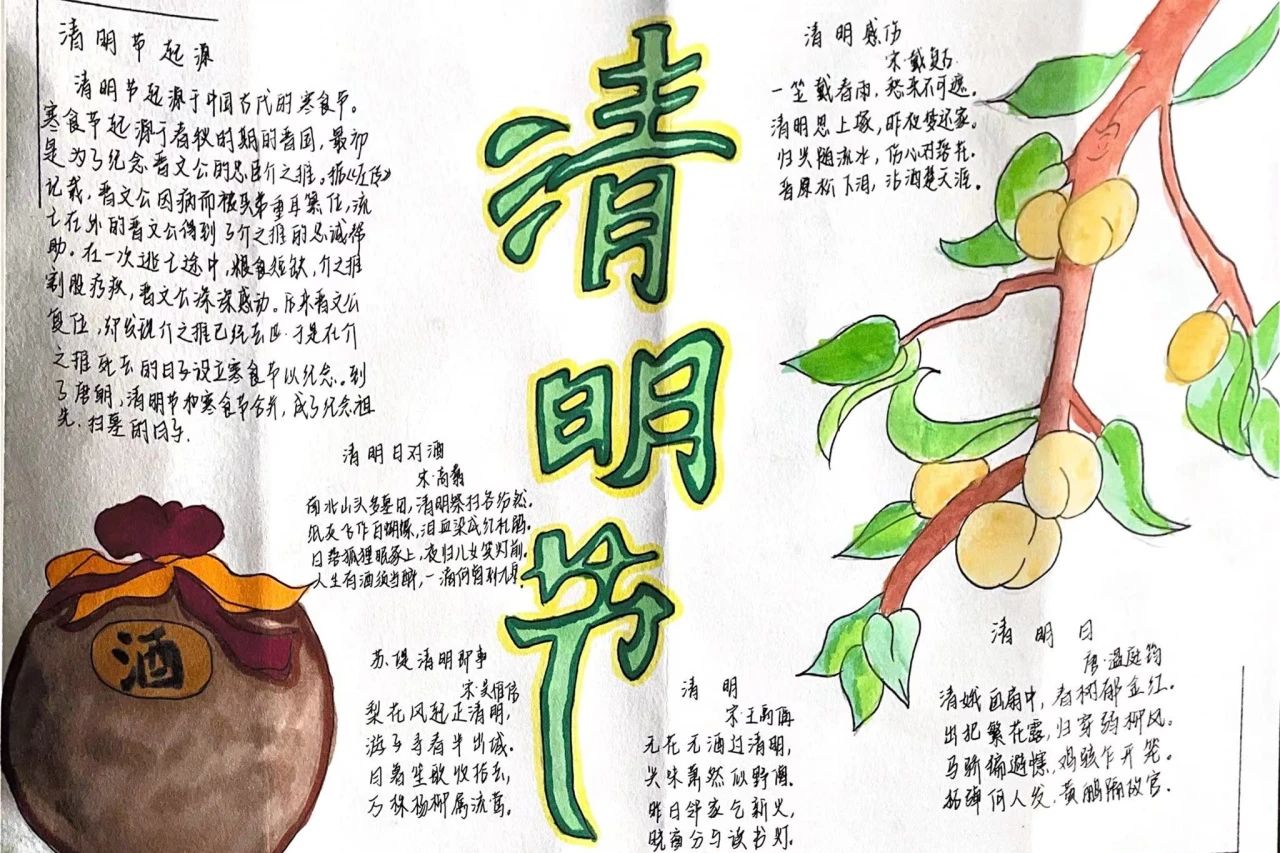 清明节起源
清明节起源于中国古代的寒食节。
寒食节起源于春秋时期的晋国，最初
是为了纪念晋文公的忠臣介之推。据《左传》
记载，晋文公因病而被头弟重耳篡位，流
亡在外的晋文公得到了介之推的忠诚帮
助。在一次逃亡途中，粮食短缺，介之推
割股疗疾，晋文公深深感动。后来晋文公
复位，却发现介之推已经去世。于是在介
之推死去的日子设立寒食节以纪念。到
了唐朝，清明节和寒食节合并，成了纪念祖
先、扫墓的日子。
清明节
清明感伤
宋·戴复古
一笠戴春雨，愁来不可遮。
清明思上冢，昨夜梦还家。
归兴随流水，伤心对落花。
晋原松下泪，沾洒楚天涯。
清明日对酒
宋·高翥
南北山头多墓田，清明祭扫各纷然。
纸灰飞作白蝴蝶，泪血染成红杜鹃。
日落狐狸眠冢上，夜归儿女笑灯前。
人生有酒须当醉，一滴何曾到九泉。
酒
苏堤清明即事
宋·吴惟信
梨花风起正清明，
游子寻春半出城。
日暮笙歌收拾去，
万株杨柳属流莺。
清明
宋·王禹偁
无花无酒过清明，
兴味萧然似野僧。
昨日邻家乞新火，
晓窗分与读书灯。
清明日
唐·温庭筠
清娥画扇中，春树郁金红。
出犯繁花露，归穿弱柳风。
马骄偏避幰，鸡骇乍开笼。
柘弹何人发，黄鹂隔故宫。